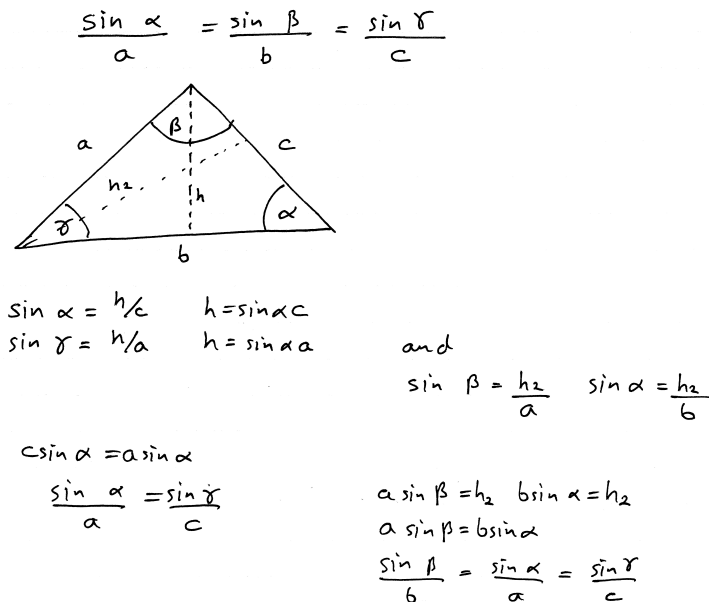 sin α / a = sin β / b = sin γ / c
β
a
c
h₂
h
γ
α
b
sin α = h/c h = sin α c
sin γ = h/a h = sin α a
and
sin β = h₂/a sin α = h₂/b
c sin α = a sin α
sin α / a = sin γ / c
a sin β = h₂ b sin α = h₂
a sin β = b sin α
sin β / b = sin α / a = sin γ / c